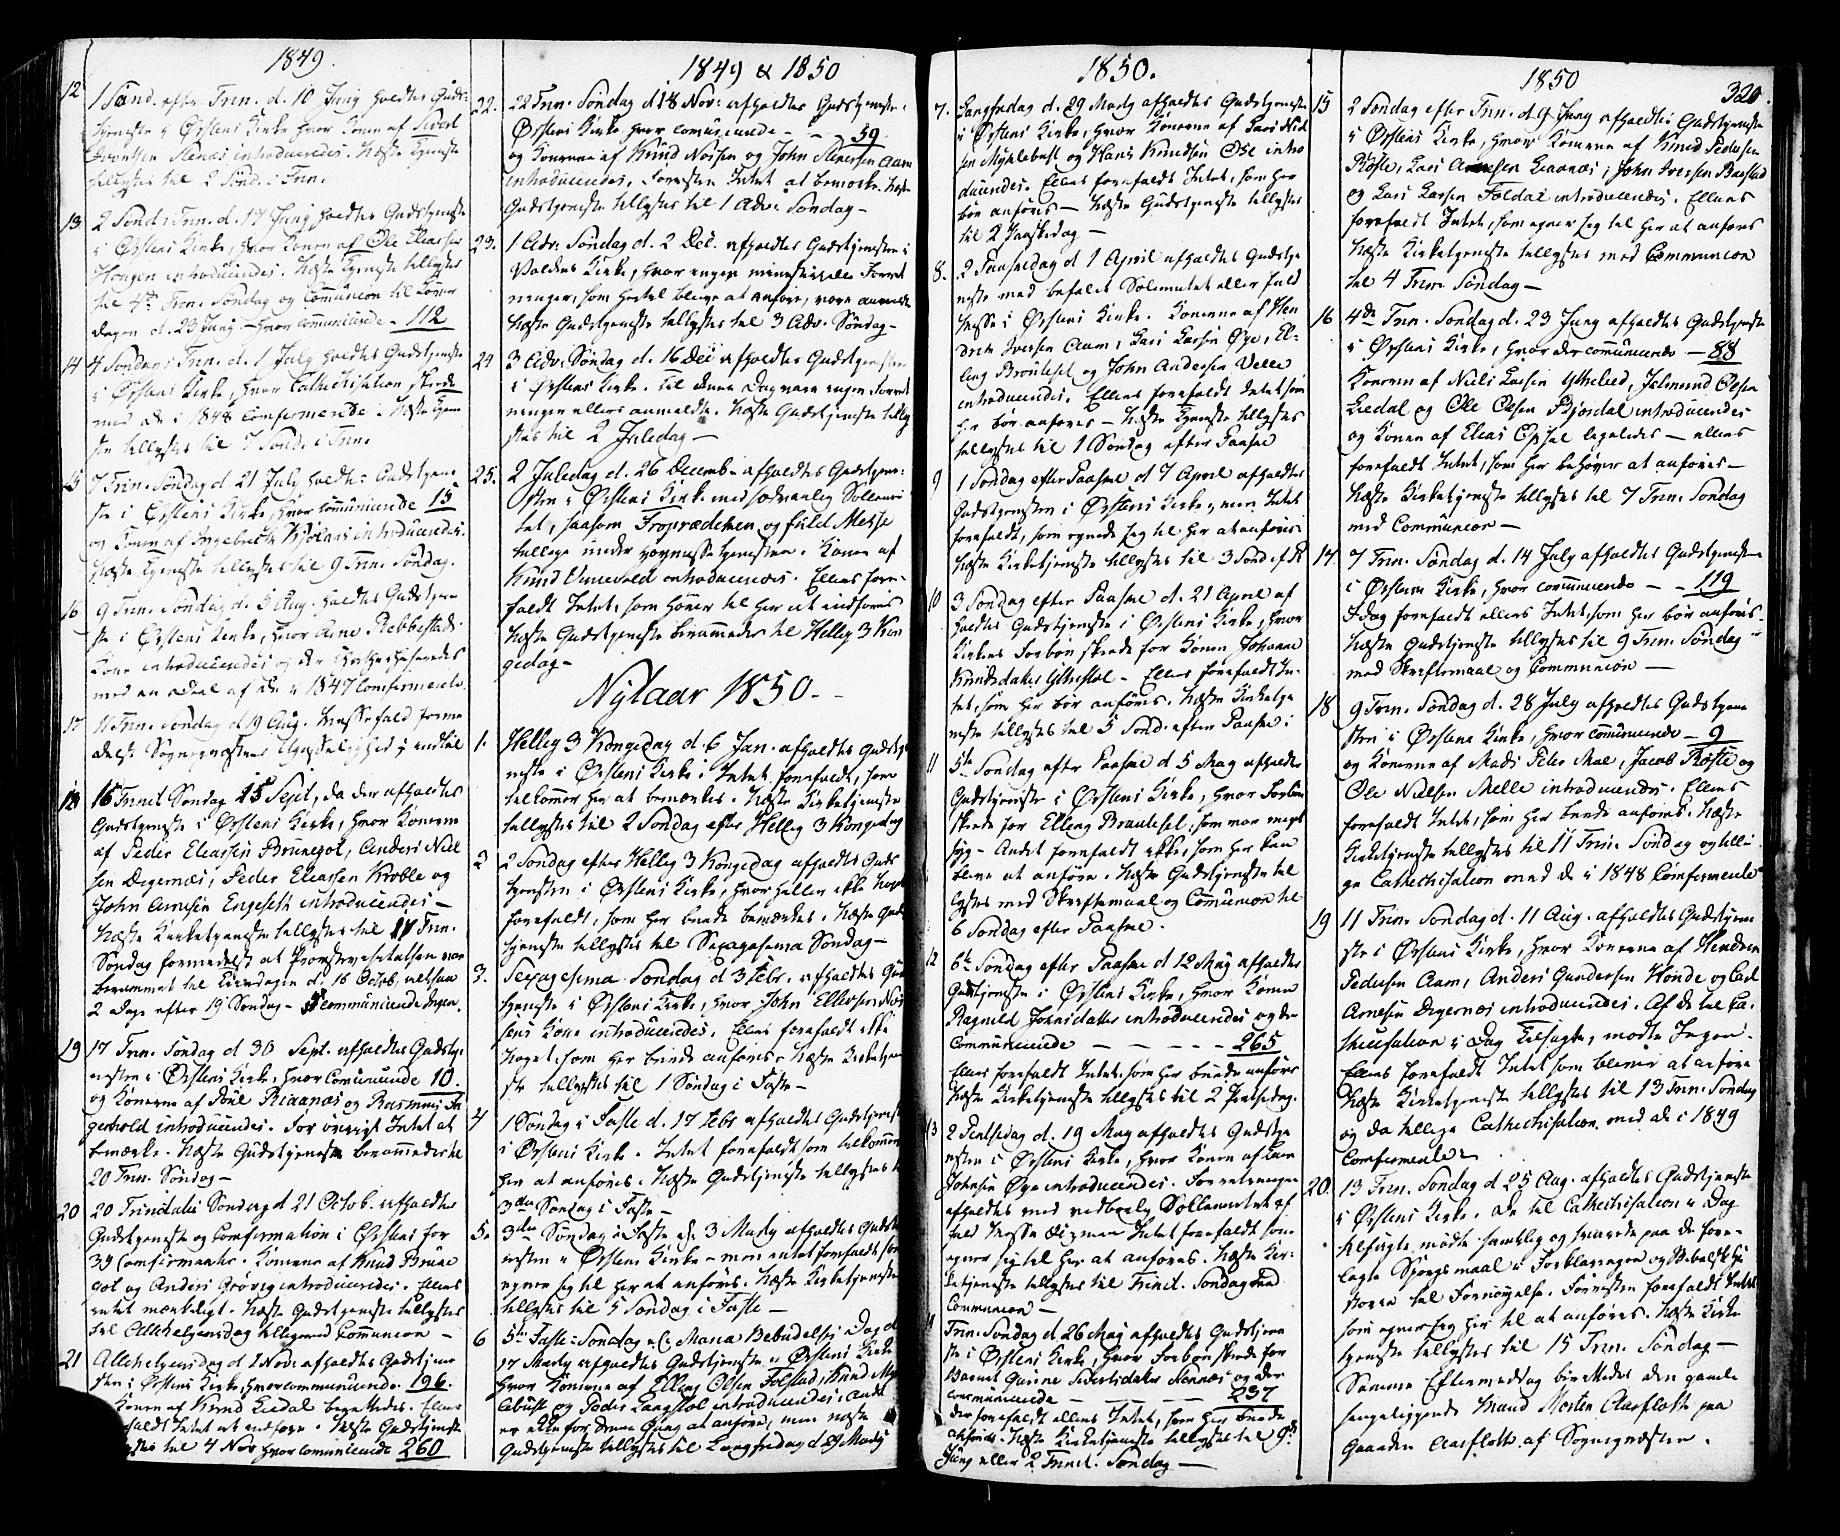 1849.
12 1 Sønd. efter Trin. d. 10 Juny holdtes Guds-
tjeneste i Ørstens Kirke hvor Konen af Sivert
Stenæs introducerdes. Næste Tjeneste
tillystes til 2 Sønd. i Trin.
13 2 Sønd. Trin. d. 17 Juny holdtes Gudstjeneste
i Ørstens Kirke, hvor Konen af Ole Eliassen
Hougen introducerdes. Næste Tjeneste tillystes
til 4de Trin. Søndag og Communion til Løver
dagen d. 23 Juny - hvor communicerede - 112
14 4 Søndag i Trin. d. 1 July holdtes Gudstjeneste
i Ørstens Kirke, hvor Cathechisation skeede
med de i 1848 Confirmerede. Næste Tjene
ste tillystes til 7 Sønd. i Trin.
15 7 Trin. Søndag d. 21 July holdtes Gudstjene
ste i Ørstens Kirke, hvor communicerede 15
og Konen af Ingebrigt Kjølaas introducerdes.
Næste Tjeneste tillystes til 9 Trin. Søndag.
16 9 Trin. Søndag d. 5 Aug. holdtes Gudstjene
ste i Ørstens Kirke, hvor Arne Rebbestads
Kone introducerdes og der Cathechiseredes
med en Deel af de i 1847 Confirmerede.
17 11 Trin. Søndag d. 19 Aug. Messefald forme
delst Sognepræstens Upasselighed
18 15 Trinit Søndag 15 Sept, da der afholdtes
Gudstjeneste i Ørstens Kirke, hvor Konerne
af Peder Eliassen Brunegot, Anders Niel
sen Digernæs, Peder Eliassen Kroble og
John Arnesen Engeseth introducerdes -
Næste Kirketjeneste tillystes til 17 Trin.
Søndag formedelst at Provstevisitatsen var
berammet til Tirsdagen d. 16 Octob, altsaa
2 Dage efter 19 Søndag - communicerede Ingen.
19 17 Trin. Søndag d 30 Sept. afholdtes Gudstje
nesten i Ørstens Kirke, hvor Communicerede 10.
og Konerne af Poul Riaanæs og Rasmus
introducerdes. For øvrigt Intet at
bemærke. Næste Gudstjeneste berammedes til
20 Trin. Søndag -
20 20 Trinitatis Søndag d 21 Octob. afholdtes
Gudstjeneste og Confirmation i Ørsten for
39 Confirmanter. Konerne af Knud Brune
got og Anders Grøvig introducerdes. Ellers
intet mærkeligt. Næste Gudstjeneste tillystes
til Allehelgensdag tilligemed Comunion -
21 Allehelgensdag d 1 Nov: afholdtes Gudstjene
sten i Ørstens Kirke, hvor communicerede 196.
Konen af Knud Liedal Ellers
faldt Intet at anføre. Næste Gudstjeneste
til 4 Nov hvor communicerede 260
1849 & 1850
22. 22 Trin. Søndag d 18 Nov: afholdtes Gudstjeneste i
Ørstens Kirke hvor comunicerede - - - 59.
og Konerne af Knud Noisen og John Siversen Aam
introducerdes, Foresten Intet at bemærke. Næste
Gudstjeneste tillystes til 1 Adv: Søndag -
23. 1 Adv. Søndag d. 2 Dec. afholdtes Gudstjenesten i
Voldens Kirke, hvor ingen ministerielle Forret
ninger, som hertil bleve at anføre, vare anmeldte
Næste Gudstjeneste tillystes til 3 Adv. Søndag -
24 3 Adv. Søndag d. 16 Dec afholdtes Gudstjenesten
i Ørstens Kirke. Til denne Dag vare ingen Forret
ninger ellers anmeldte. Næste Gudstjeneste tilly
stes til 2 Juledag -
25. 2 Juledag d. 26 Decemb. afholdtes Gudstjene-
sten i Ørstens Kirke med sædvanlig Solleni
tet, saasom Froprædiken, og fuld Messe
tillige under Høymessetjenesten. Konen af
Knud Vinnevold introducerdes. Ellers fore-
faldt Intet, som hører til her at indføres
Næste Gudstjeneste berammedes til Hellig 3 Kon
gedag -
Nytaar 1850. -
1. Hellig 3 Kongedag d. 6 Jan. afholdtes Gudstje
neste i Ørstens Kirke. Intet forefaldt, som
tilkommer her at bemærkes. Næste Kirketjeneste
tillystes til 2 Søndag efter Hellig 3 Kongedag
2 2 Søndag efter Hellig 3 Kongedag afholdtes Guds
tjenesten i Ørstens Kirke, hvor heller ikke noget
forefaldt, som her burde bemærkes. Næste Guds
tjeneste tillystes til Sexagesima Søndag -
3. Sexagesima Søndag d 3 Febr. afholdtes Guds
tjeneste i Ørstens Kirke, hvor John Ellefsen
Kone introducerdes. Ellers forefaldt ikke
noget, som her burde anføres. Næste Kirketjene
ste tillystes til 1 Søndag i Faste -
4 1 Søndag i Faste d. 17 Febr afholdtes Gudstjeneste
i Ørstens Kirke. Intet forefaldt som tilkommer
her at anføres. Næste Gudstjeneste tillystes til
3die Søndag i Faste -
5. 3die Søndag i Faste d. 3 Marty afholdtes Gudstje
nesten i Ørstens Kirke - men intet forefaldt som
egner sig til her at anføres. Næste Kirketjeneste
tillystes til 5 Søndag i Faste -
6 5te Faste-Søndag Maria Bebudelses Dag d
17 Marty afholdtes Gudstjeneste i Ørstens Kirke
hvor Konerne af Elling Olsen Folstad, Knud My
klebust og Peder Langstøl introducerdes. Andet
er ikke for denne Gang at anføre, men næste
Gudstjeneste tillystes til Langfredag d 29 Marty
1850.
7. Langfredag d. 29 Marty afholdtes Gudstjeneste
i Ørstens Kirke, hvor Konerne af Lars Niel
sen Myklebust og Hans Knudsen Øie intro
ducerdes. Ellers forefaldt Intet, som her
bør anføres - Næste Gudstjeneste tillystes
til 2 Paaskedag -
8. 2 Paaskedag d 1 April afholdtes Gudstje
neste med befalet Solennitet eller fuld
Messe i Ørstens Kirke. Konerne af Hen
drik Iversen Aam, Lars Larsen Øye, El-
ling Brautesel og John Andersen Velle
introducerdes. Ellers forefaldt Intet som
her bør anføres - Næste Tjeneste tillystes
tillystes til 1 Søndag efter Paaske
9 1 Søndag efter Paaske d 7 April afholdtes
Gudstjenesten i Ørstens Kirke, men Intet
forefaldt, som egnede sig til her at anføres
Næste Kirketjeneste tillystes til 3 Sønd. ef. P.
10 3 Søndag efter Paaske d. 21 April af
holdtes Gudstjeneste i Ørstens Kirke, hvor
Kirkens Forbøn skeede for Konen Johanne
Knudsdatter Ytterstøl - Ellers forefaldt In-
tet, som her bør anføres. Næste Kirketje
neste tillystes til 5 Sønd. efter Paaske.
11 5te Søndag efter Paaske d 5 May afholdtes
Gudstjeneste i Ørstens Kirke, hvor Forbøn
skeede for Elling Brautesel, som var meget
syg - Andet forefaldt ikke, som her kan
bleve at anføre. Næste Gudstjeneste til
lystes med Skriftemaal og Comunion til
6 Søndag efter Paaske.
12 6te Søndag efter Paaske d 12 May afholdtes
Gudstjeneste i Ørstens Kirke, hvor Konen
Ragnild Johnsdatter introducerdes og der
Communicerede - - - - - 265
Ellers forefaldt Intet, som her burde anføres
Næste Kirketjeneste tillystes til 2 Pintsedag.
13 2 Pintsedag d. 19 May afholdtes Gudstje
nesten i Ørstens Kirke, hvor Konen af Lars
Johnsen Øye introducerdes. Forretningen
afholdtes med vedbørlig Sollennitet af
fuld Messe men Intet forefaldt som
egner sig til her at anføres. Næste Kir-
ketjeneste tillystes til Trinit. Søndag med
Communion -
14 Trin. Søndag d. 26 May afholdtes Gudstjene
ste i Ørstens Kirke, hvor Forbøn skeede for
Barnet Gurine Sivertsdatter Stennæs og der
communicerede - - - 237
Der forefaldt ellers Intet, som her burde
anføres. Næste Kirketjeneste tillystes til 9de
Juny eller 2 Trinit. Søndag -
1850
320.
15 2 Søndag efter Trin. d. 9 Juny afholdtes Gudstjeneste
i Ørstens Kirke, hvor Konerne af Knud Pedersen
Røste, Lars Arnesen Liaanæs, John Iversen Barstad
og Lars Larsen Foldal introducerdes. Ellers
forefaldt Intet, som egner sig til her at anføres
Næste Kirketjeneste tillystes med Communion
til 4 Trin. Søndag -
16 4de Trin. Søndag d. 23 Juny afholdtes Gudstjeneste
i Ørstens Kirke, hvor der communicerede - 88
Konerne af Niels Larsen Ytrelid, Iselmund Olsen
Liedal og Ole Olsen Bjørdal introducerdes
og Konen af Elias Opsal ligeledes - ellers
forefaldt Intet, som her behøver at anføres -
Næste Kirketjeneste tillystes til 7 Trin. Søndag
med Communion -
17 7 Trin. Søndag d. 14 July afholdtes Gudstjeneste
i Ørstens Kirke, hvor communicerede - - 119
I Dag forefaldt ellers Intet, som her bør anføres.
Næste Gudstjeneste tillystes til 9 Trin. Søndag
med Skriftemaal og Communion -
18 9 Trin. Søndag d. 28 July afholdtes Gudstjene
sten i Ørstens Kirke, hvor communicerede - 9
og Konerne af Mads Peter Moe, Jacob Røste og
Ole Nielsen Melle introducerdes. Ellers
forefaldt Intet, som her burde anføres. Næste
Kirketjeneste tillystes til 11 Trin. Søndag og tilli-
ge Cathechisation med de i 1848 Confirmerede
19 11 Trin. Søndag d. 11 Aug. afholdtes Gudstjene
ste i Ørstens Kirke, hvor Konerne af Hendrik
Pedersen Aam, Anders Gundersen Hovde og Carl
Arnesen Digernæs introducerdes. Af de til Ca-
thecisation i Dag tilsagte, mødte Ingen -
Ellers forefaldt Intet som bliver at anføre
Næste Kirketjeneste tillystes til 13 Trin. Søndag
og da tillige Cathechisation med de i 1849
Confirmerede.
20. 13 Trin. Søndag d 25 Aug. afholdtes Gudstjeneste
i Ørstens Kirke. De til Cathechisation i Dag
tilsagte mødte samtlig og svarede paa de fore-
lagte Spørgsmaal i Forklaringen og Bibelhi
storie til Fornøyelse. Foresten forefaldt Intet
som egner sig her til at anføres. Næste Kirke
tjeneste tillystes til 15 Trin. Søndag -
Samme Eftermiddag berettedes den gamle
sengeliggende Mand Morten Aarflotk paa
Gaarden Aarflotk af Sognepræsten.